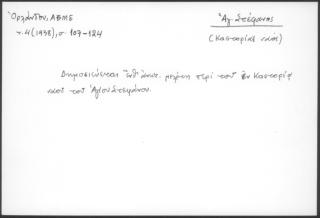 Ὀρλάνδου, ΑΒΜΕ
τ. 4 (1938), σ. 107-124
Ἁγ. Στέφανος
(Καστοριάς ναός)
Δημοσιεύεται μελέτη περί του ἐν Καστορίᾳ
ναού του Ἁγίου Στεφάνου.